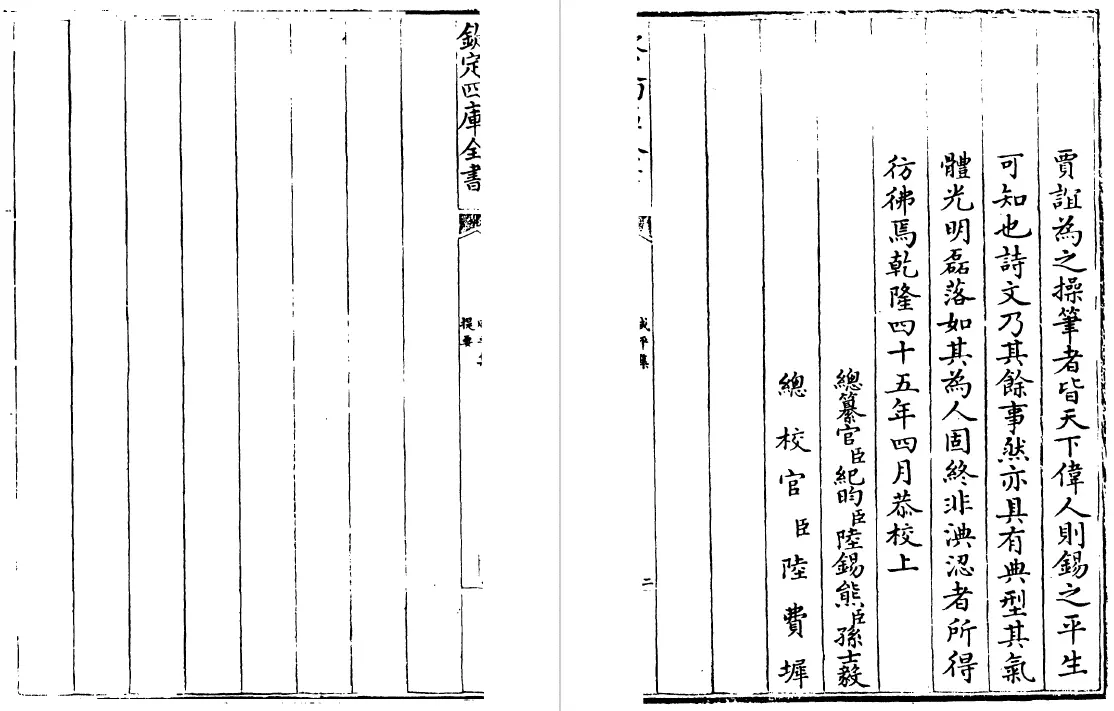 賈誼為之操筆者皆天下偉人則錫之平生
可知也詩文乃其餘事然亦具有典型其氣
體光明磊落如其為人固終非淟涊者所得
彷彿焉乾隆四十五年四月恭校上
總纂官臣紀昀臣陸錫熊臣孫士毅
總校官臣陸費墀
咸平集
二
欽定四庫全書
提要